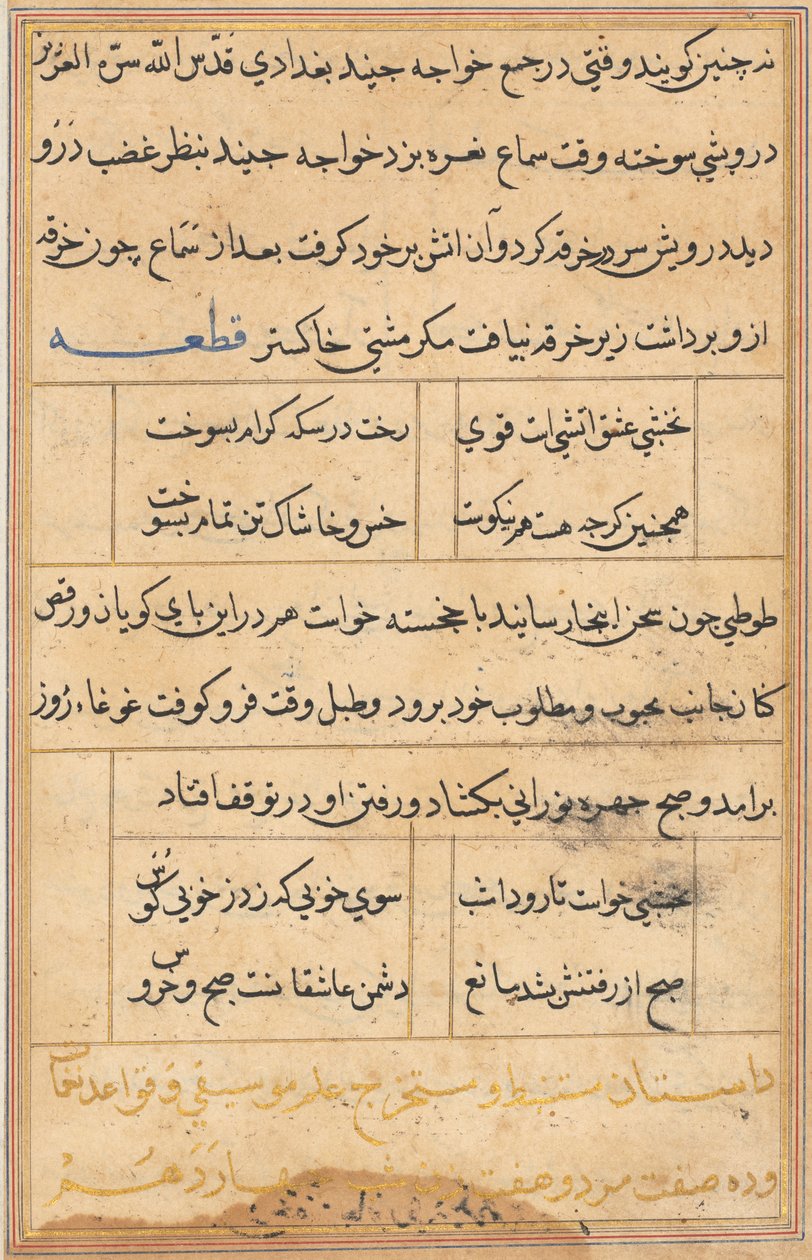 ند چنین کویند وقتی در جمع خواجه جنید بغدادي قَدّس الله سرّه العزیز
درویشي سوخته وقت سماع نعره بزد خواجه جنید بنظر غضب دَرُو
دید درویش سر در خرقه کرد و آن اتش بر خود کرفت بعد از سَمَاع چون خرقه
ازو برداشت زیر خرقه نیافت مکر مشتي خاکستر قطعه
نخشبي عشق اتشي است قوي رخت در سکه کرام بسوخت
همچنین کرچه هست هم نیکوست خس و خاشاک تن تمام بسوخت
طوطي چون سخن اینجا رسانید با خجسته خواست هم در این باي کویان و رقص
کنان جانب محبوب و مطلوب خود برود و طبل وقت فرو کوفت غوغاء روز
برامد و صبح چهره نوراني بکشاد و رفتن او در توقف افتاد
نخشبي خواست تا رود امشب سوي خوبي که زد ز خوبي کُوسْ
صبح از رفتنش بشد مانع دشمن عاشقانست صبح و خروس
داستان مستنبط و مستخرج علم موسیقي و قواعد نغمات
وده صفت مرد و هفت زن شب چهارَدَهُمْ